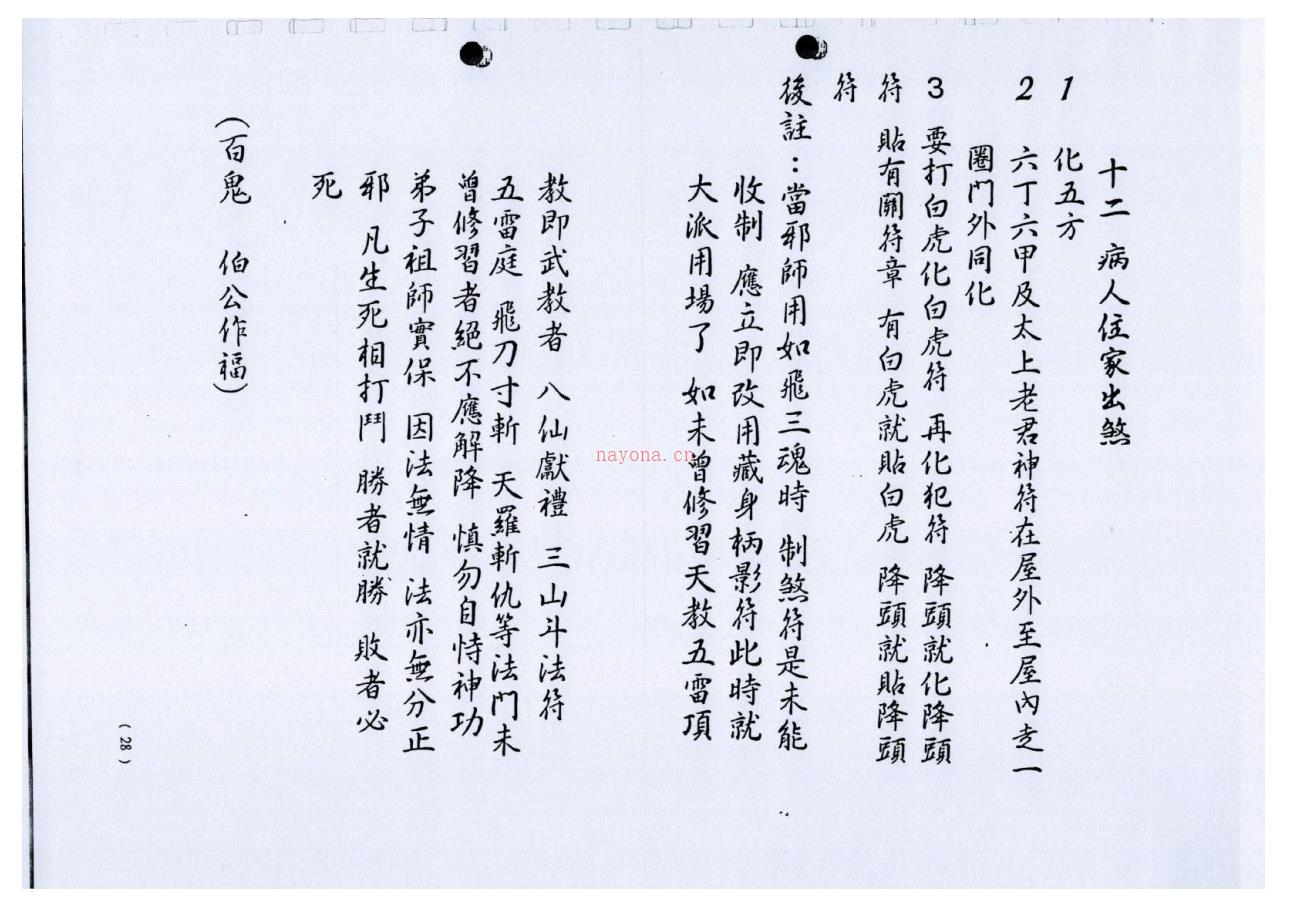 十二 病人住家出煞
1 化五方
2 六丁六甲及太上老君神符在屋外至屋內走一
圈門外同化
3 要打白虎化白虎符 再化犯符 降頭就化降頭
符 貼有關符章 有白虎就貼白虎 降頭就貼降頭
符
後註：當邪師用如飛三魂時 制煞符是未能
收制 應立即改用藏身柄影符此時就
大派用場了 如未曾修習天教五雷頂
教即武教者 八仙獻禮 三山斗法符
五雷庭 飛刀寸斬 天羅斬仇等法門未
曾修習者絕不應解降 慎勿自恃神功
弟子祖師實保 因法無情 法亦無分正
邪 凡生死相打鬥 勝者就勝 敗者必
死
(百鬼 伯公作福)
(28)
nayona.cn